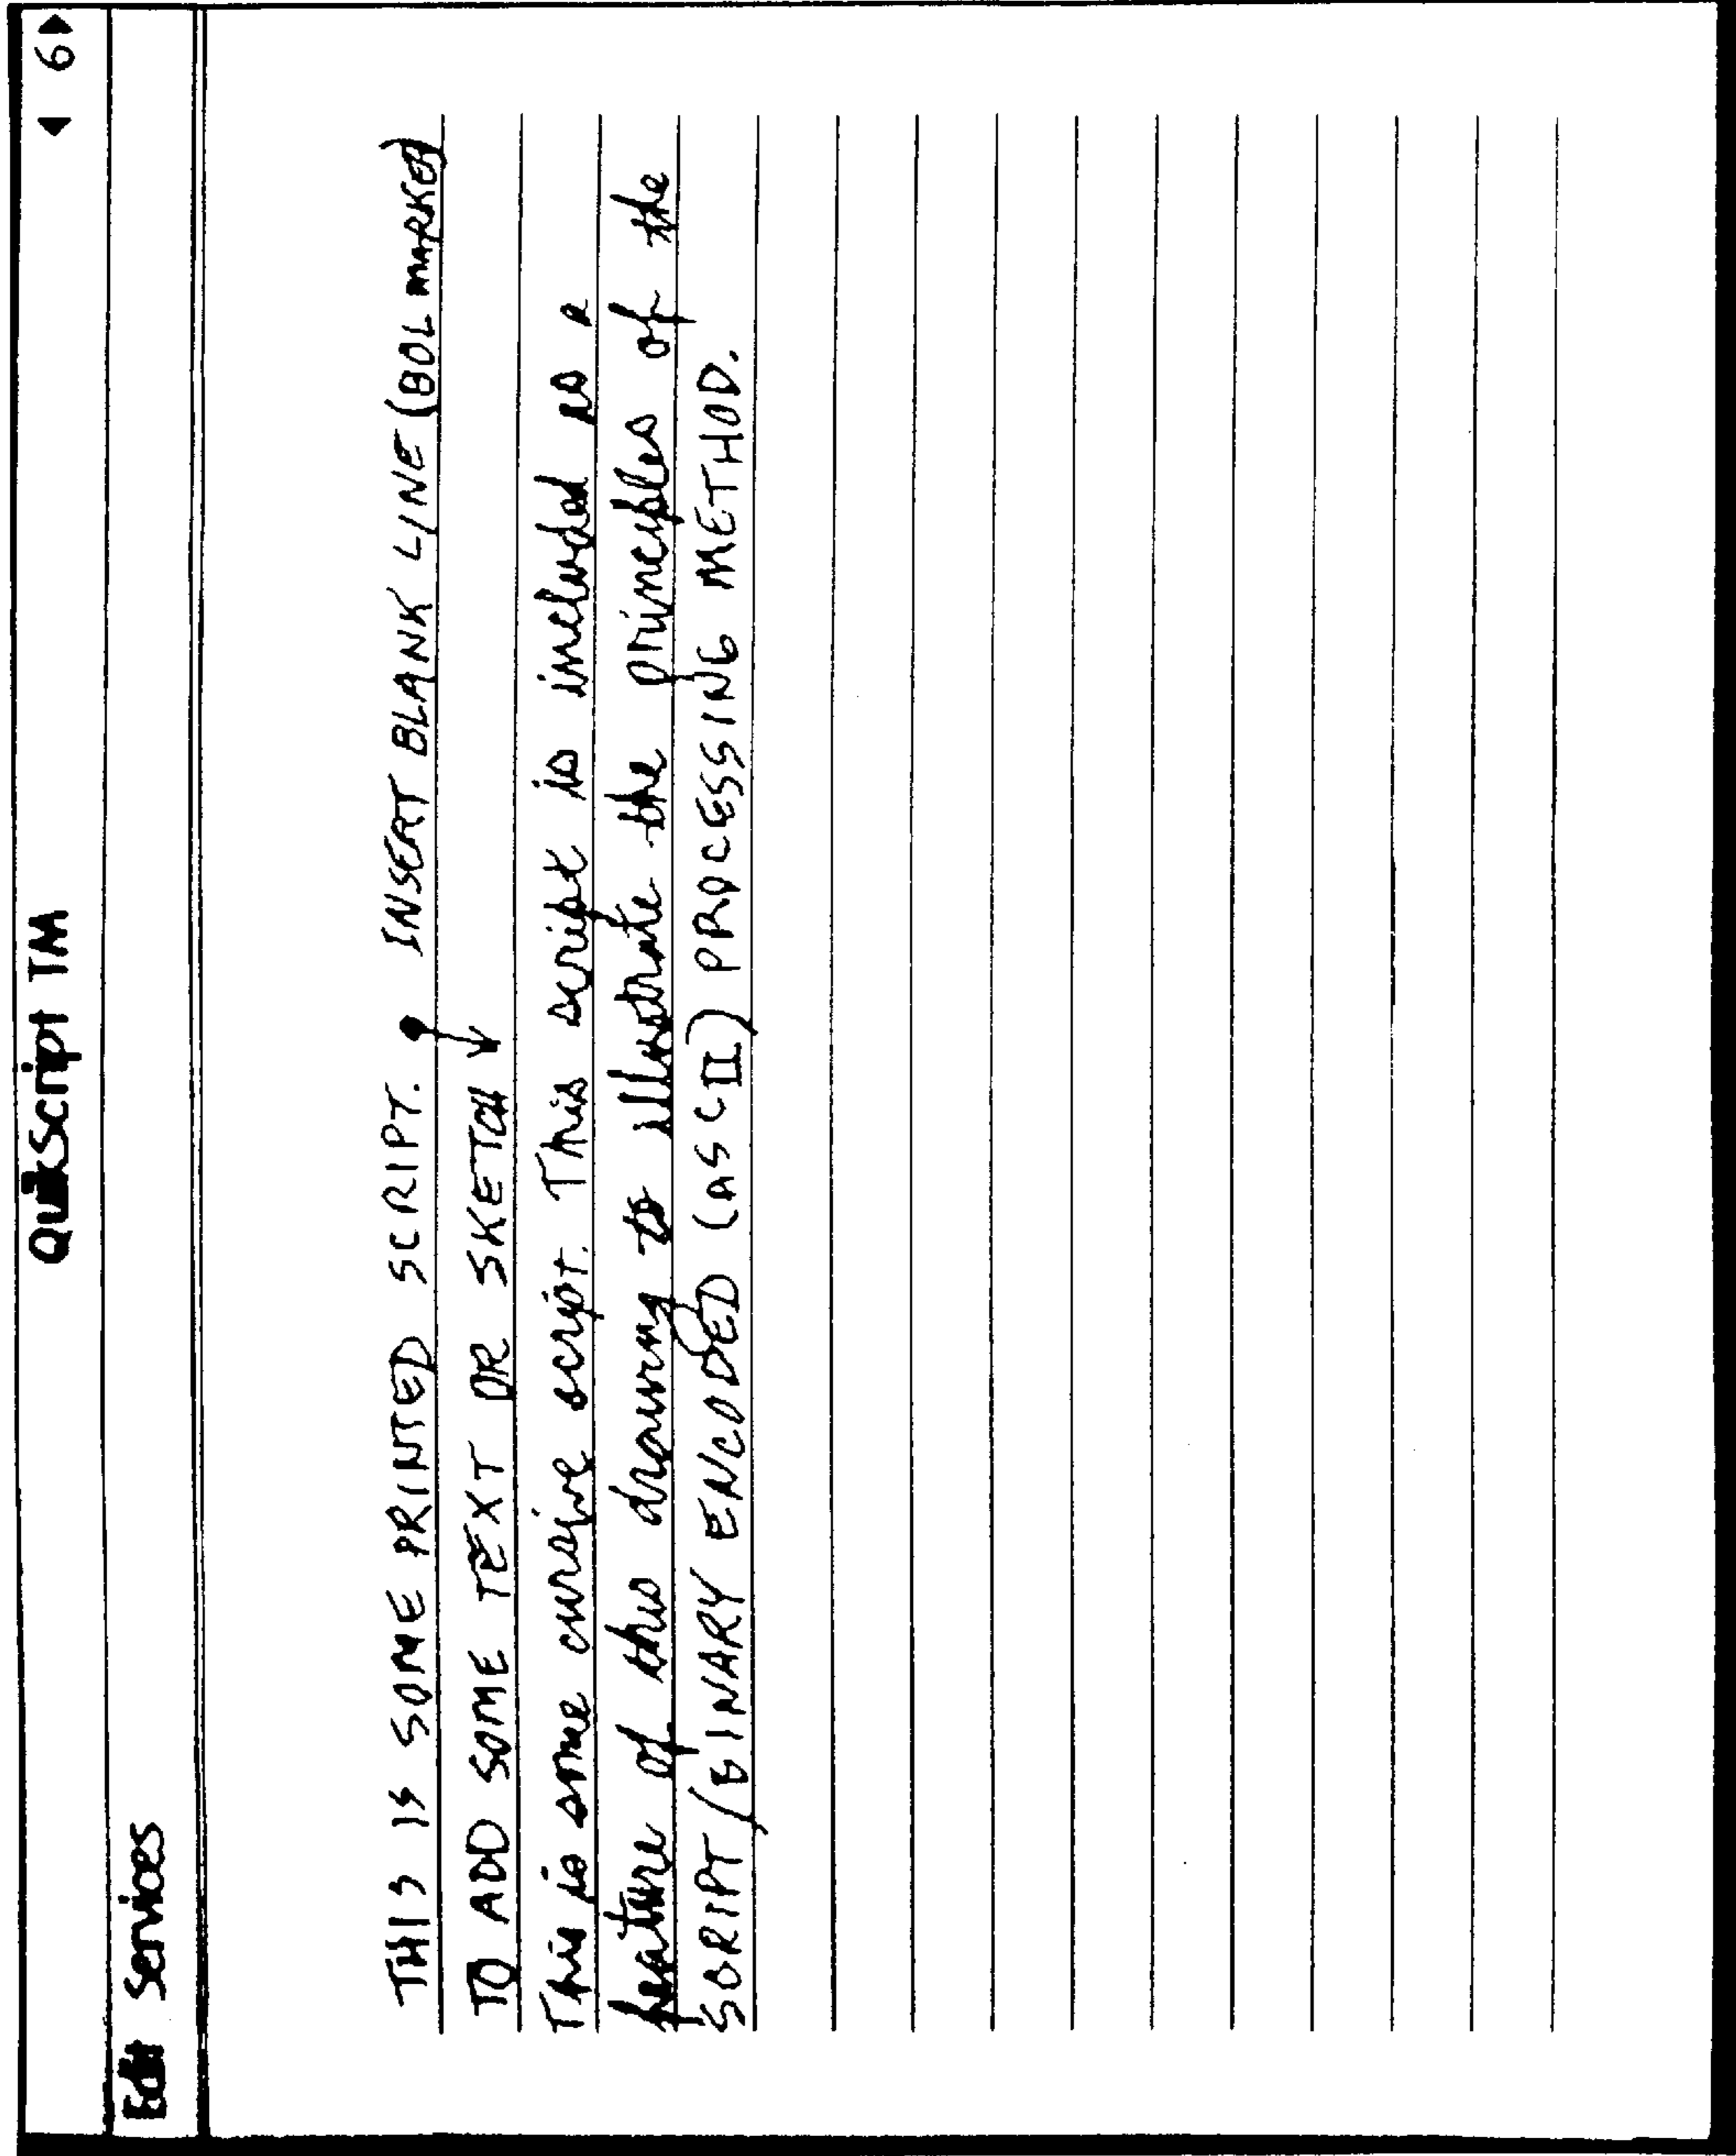 QuikScript TM
◀ 6 ▶
Edit Services
THIS IS SOME PRINTED SCRIPT. INSERT BLANK LINE (BOL MARKER)
TO ADD SOME TEXT OR SKETCH
This is some cursive script. This script is included as a
feature of this drawing to illustrate the principles of the
SCRIPT/BINARY ENCODED (ASCII) PROCESSING METHOD.